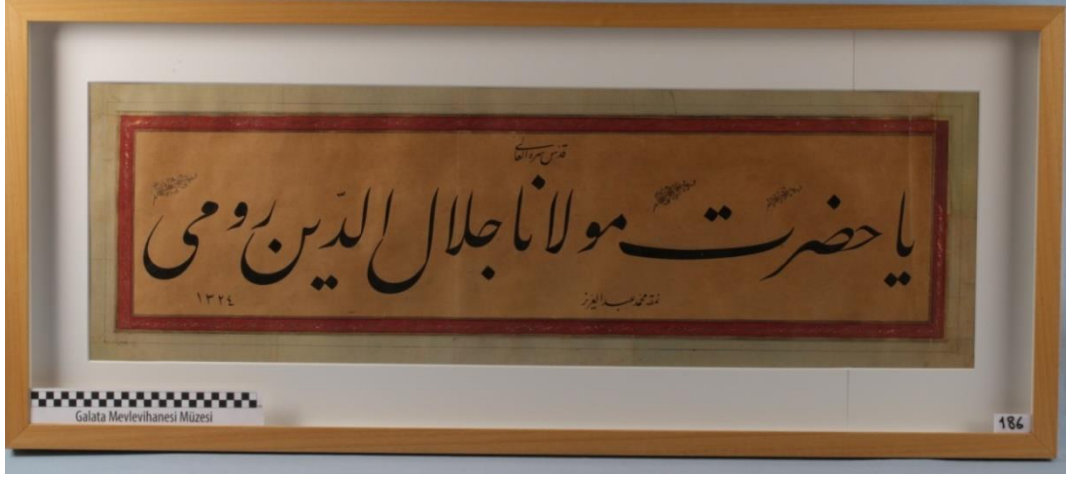 قدس سره العالی
یا حضرت مولانا جلال الدّین رومی
نمقه محمد عبد العزیز
١٣٢٤
Galata Mevlevihanesi Müzesi
186